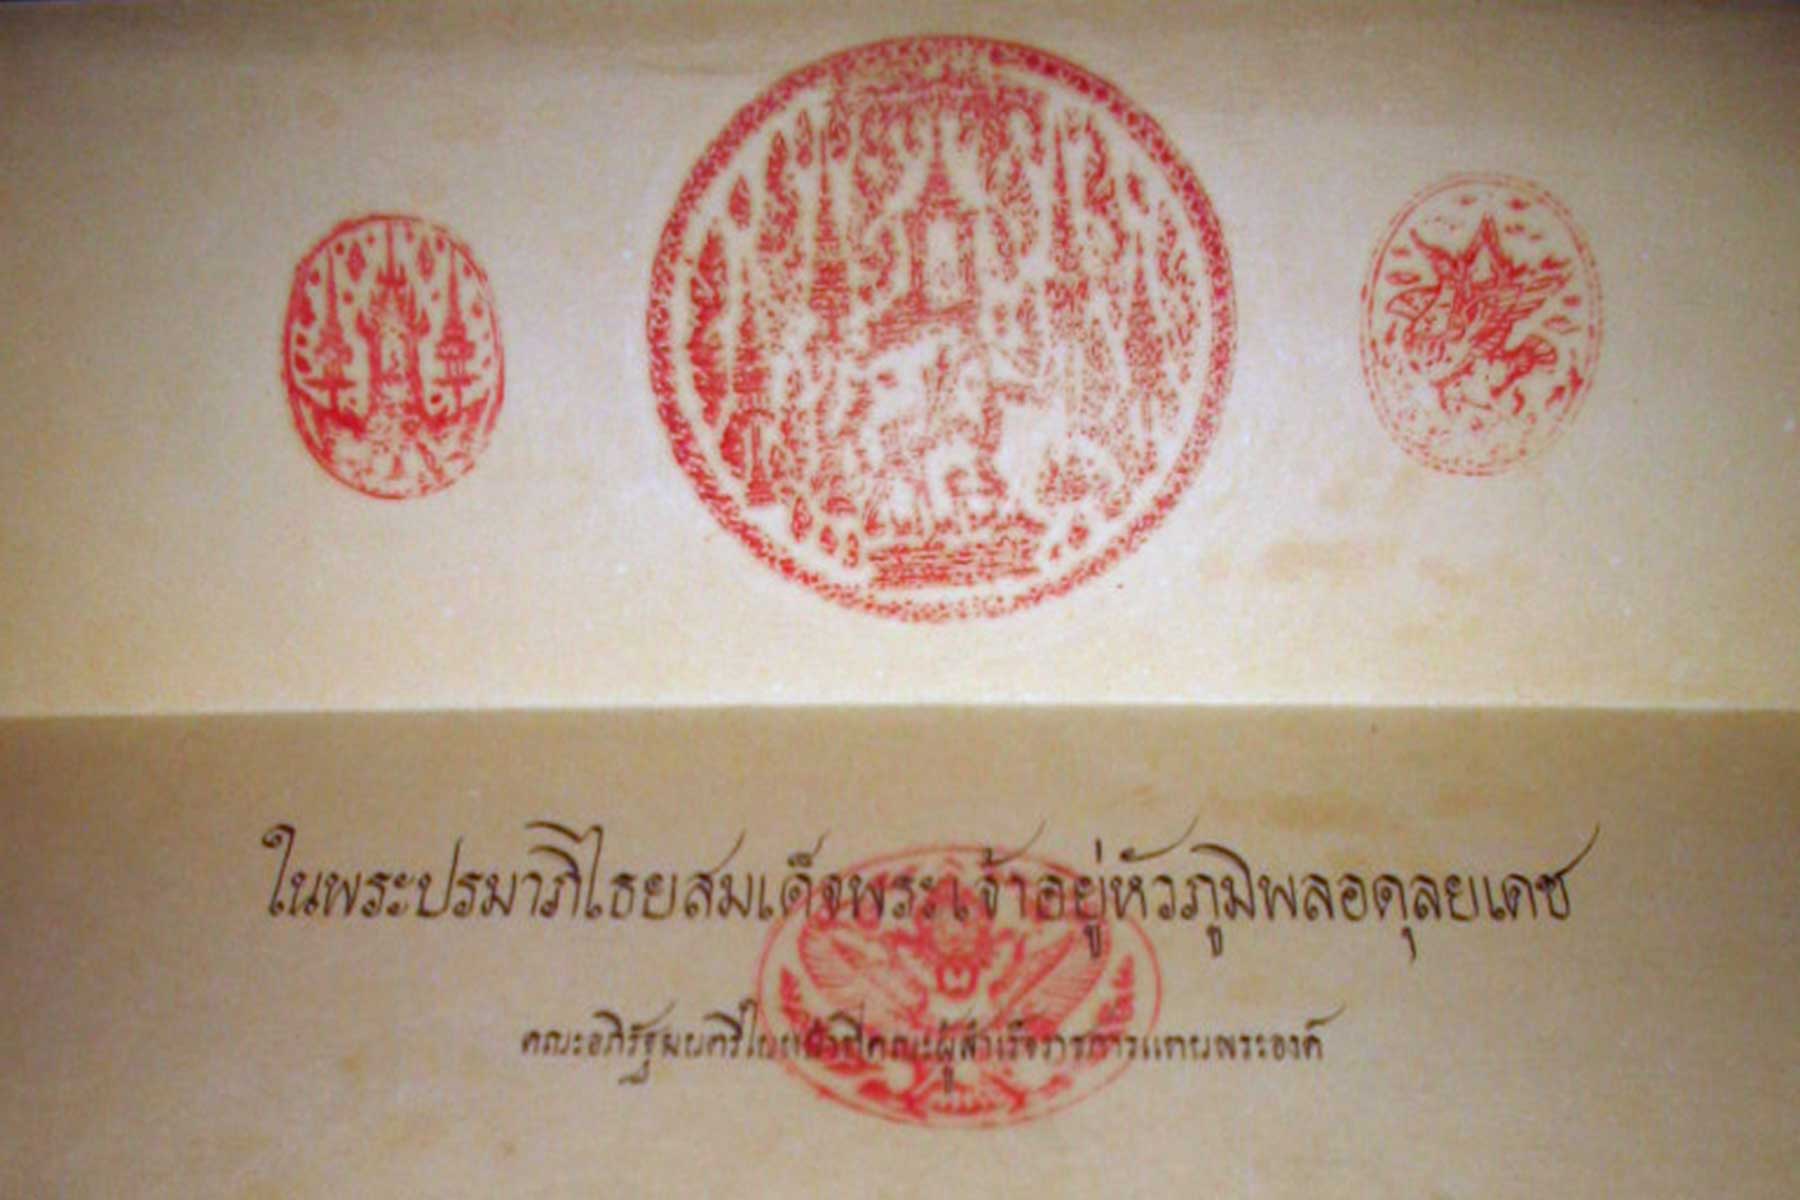 ในพระปรมาภิไธยสมเด็จพระเจ้าอยู่หัวภูมิพลอดุลยเดช
คณะอภิรัฐมนตรีในหน้าที่คณะผู้สำเร็จราชการแทนพระองค์